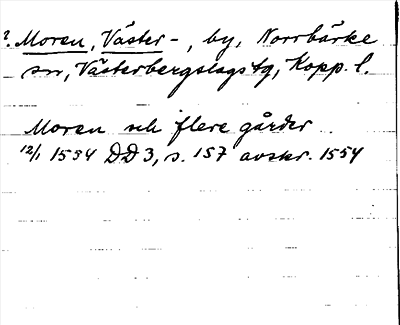 ?. Moren, Väster-, by, Norrbärke
sn, Västerbergslags tg, Kopp. l.
Moren och flere gårder
12/1 1554 DD 3, s. 157 avskr. 1554